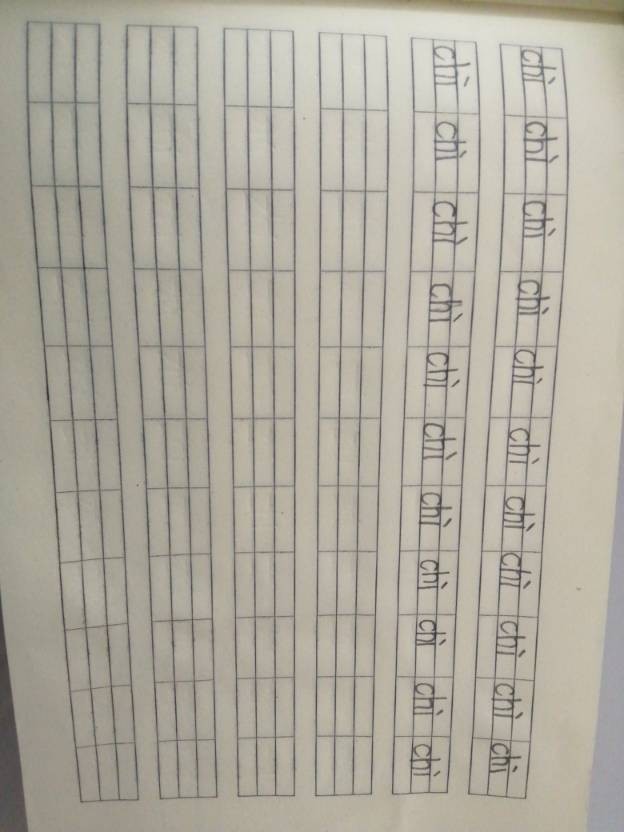 chì chì chì chì chì chì chì chì chì chì chì
chì chì chì chì chì chì chì chì chì chì chì